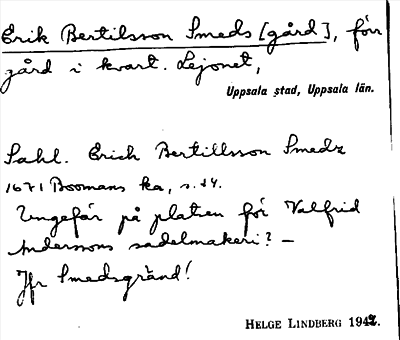 Erik Bertilsson Smeds [gård], förr
gård i kvart. Lejonet,
Uppsala stad, Uppsala län.
Sahl. Erich Bertillsson Smedz
1671 Boomans ka, s. 84.
Ungefär på platsen för Valfrid
Anderssons sadelmakeri? —
Jfr Smedsgränd!
HELGE LINDBERG 1942.